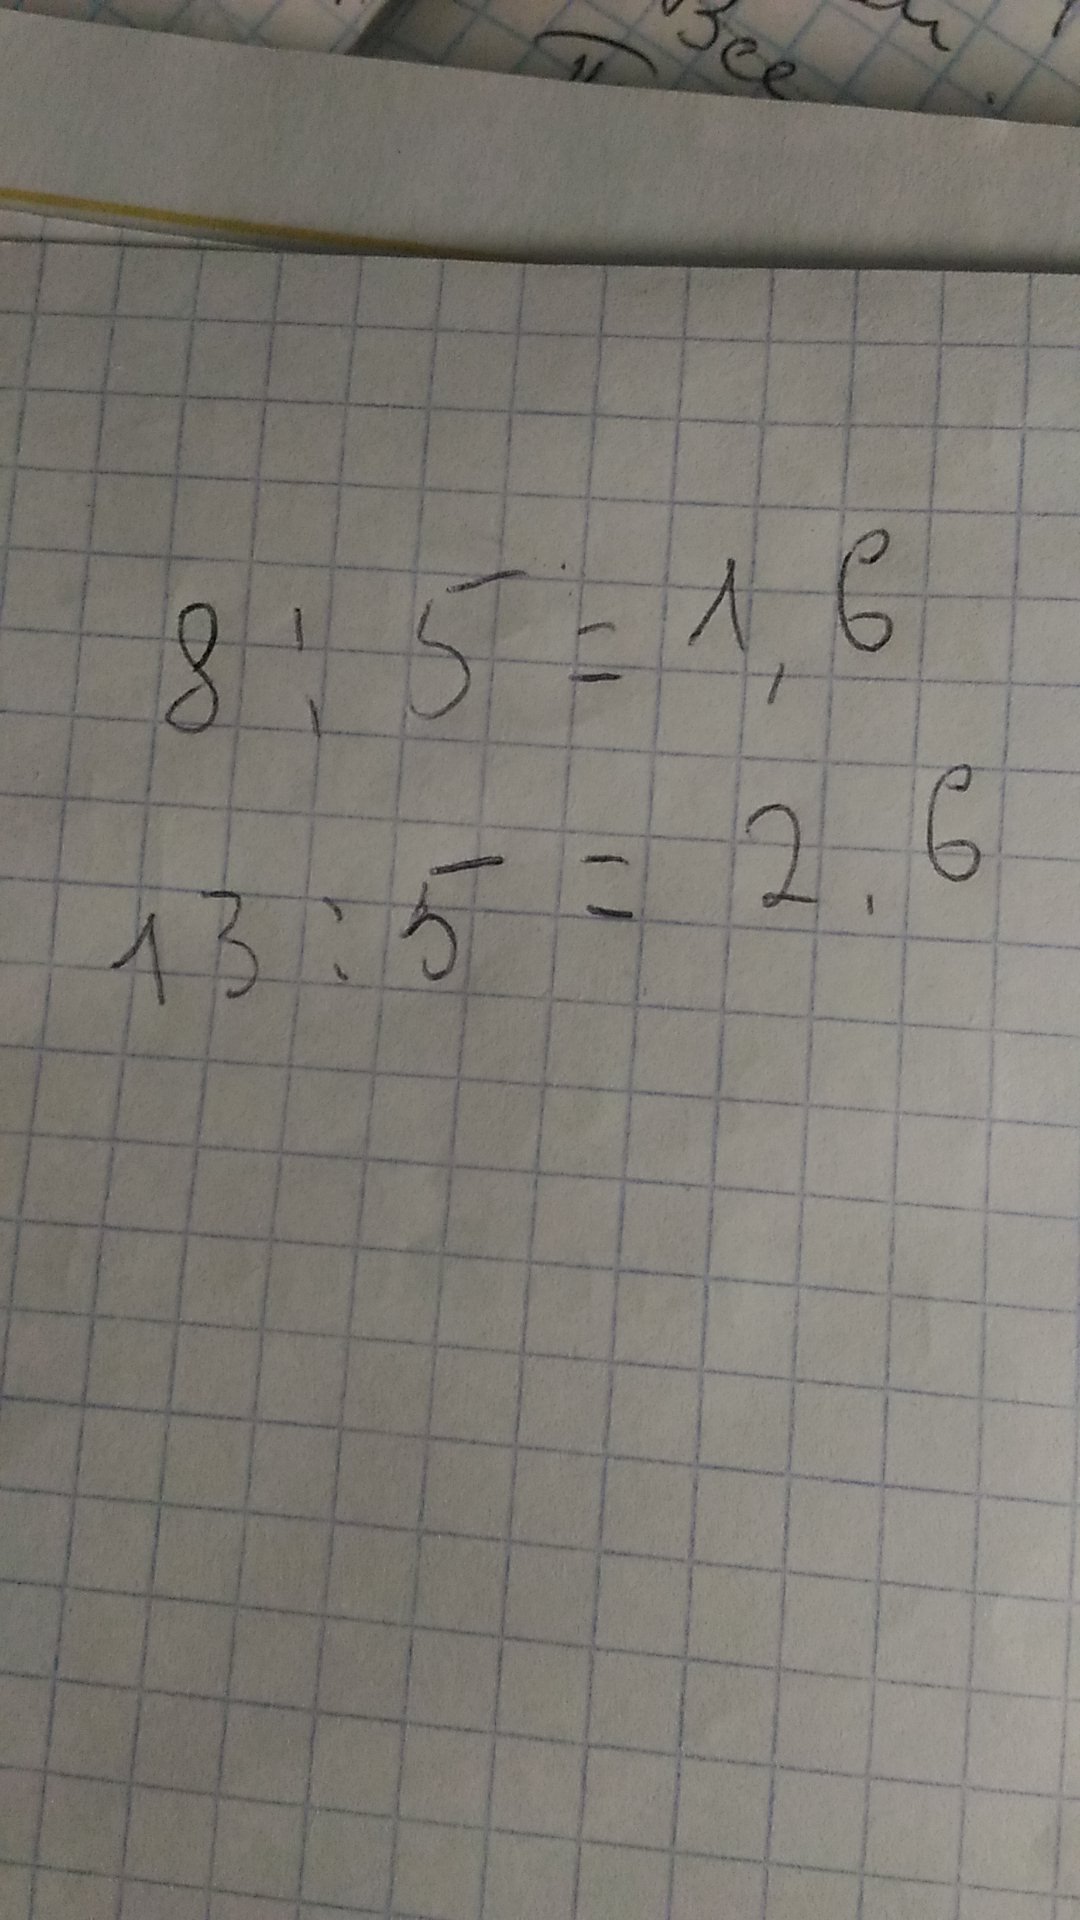 Все
8 : 5 = 1,6
13 : 5 = 2,6